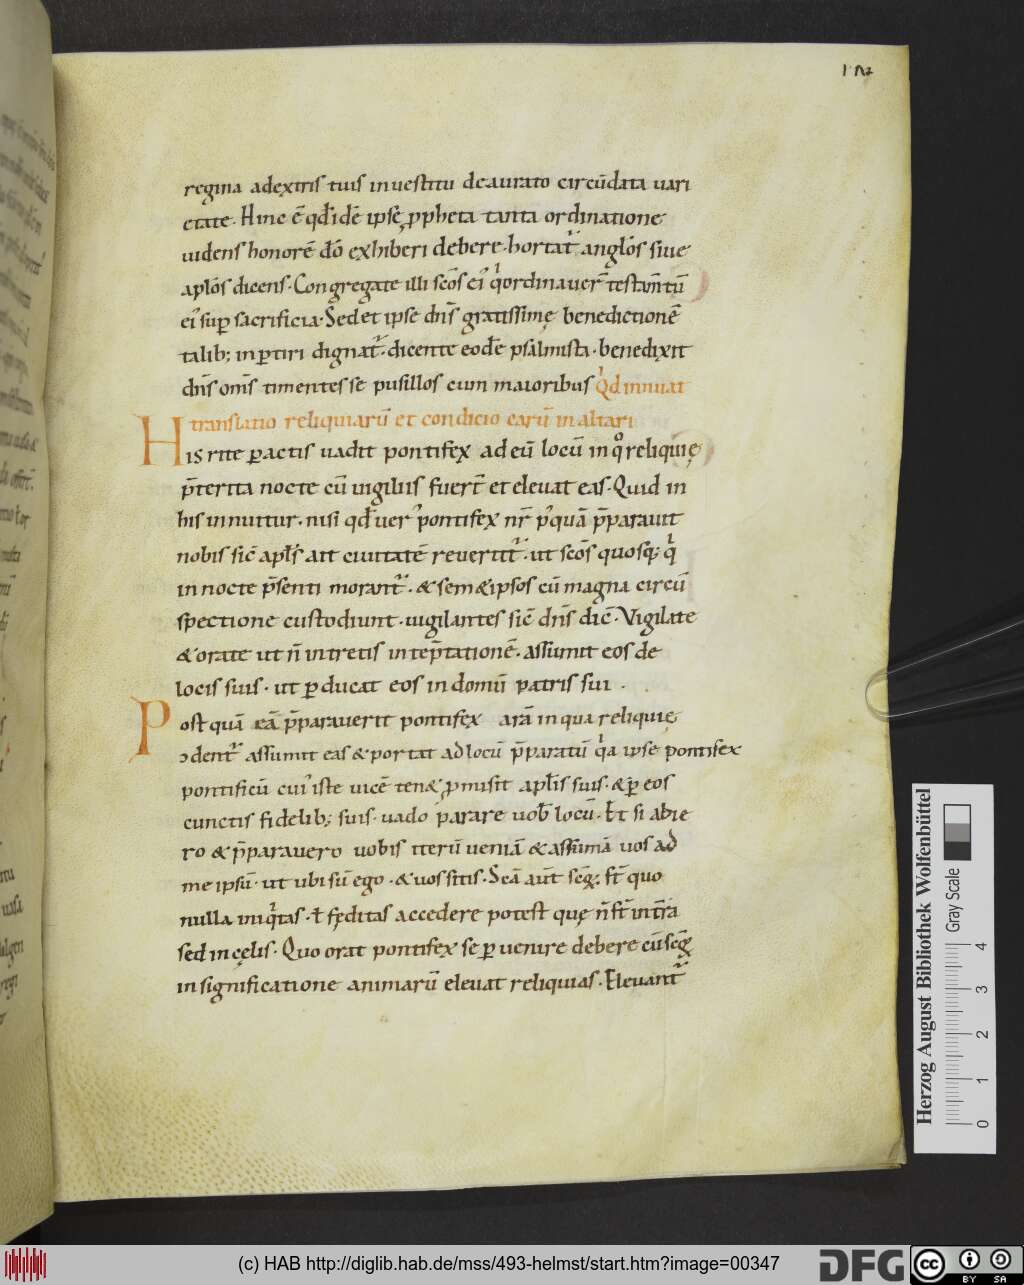 regina adextris tuis inuestitu deaurato circūdata uari
etate. Hinc ē qđ idē ipsę ꝓpheta tanta ordinatione
uidens honorē dō exhiberi debere. hortat᷑ anglōs siue
aplōs dicens. Congregate illi scōs ei᷒ qͥ ordinauer̄ testam̄tū
ei᷒ suꝑ sacrificia. Sed et ipse dn̄s gratissimę benedictionē
talib; inꝑtiri dignat᷑. dicente eodē psalmista. benedixit
dn̄s om̄s timentes se pusillos cum maioribus Qͥd innuat
translatio reliquiarū et condicio earū in altari
His rite ꝑactis uadit pontifex ad eū locū in qͦ reliquię
p̄terita nocte cū uigiliis fuer̄ et eleuat eas. Quid in
his innuitur. nisi qđ uer᷒ pontifex nr̄ p᷒quā p̄parauit
nobis sic̄ apl̄s ait ciuitatē reuertit᷑. ut scōs quosq; qͥ
in nocte p̄senti morant᷑. & sem& ipsos cū magna circū
spectione custodiunt. uigilantes sic̄ dn̄s dic̄. Vigilate
& orate ut n̄ intretis in tēptationē. assumit eos de
locis suis. ut ꝑducat eos in domū patris sui.
Post quā eā p̄parauerit pontifex arā in qua reliquię
ↄdent᷑ assumit eas & portat ad locū p̄paratū qͥa ipse pontifex
pontificū cui᷒ iste uicē ten& ꝓmisit apl̄is suis. & ꝑ eos
cunctis fidelib; suis. uado parare uob̄ locū. Et si abie
ro & p̄parauero uobis iterū ueniā & assumā uos ad
me ipsū. ut ubi sū ego. & uos sitis. Scā aūt scǭ; st̄ quo
nulla iniqͥtas. ł fęditas accedere potest quę n̄ st̄ in tr̄a
sed in cęlis. Quo orat pontifex se ꝑuenire debere cū
in significatione animarū eleuat reliquias. Eleuant᷑
Herzog August Bibliothek Wolfenbüttel
Gray Scale
0 1 2 3 4
(c) HAB http://diglib.hab.de/mss/493-helmst/start.htm?image=00347
DFG
cc BY SA